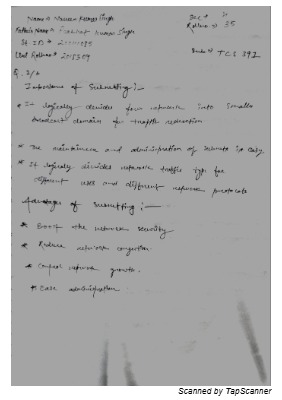 Name → Naveen Kumar Singh
Sec → 'I'
Roll no → 35
Father's Name → Kumar Singh
St. ID →
Univ Roll no →
Code → TCS 392
Importance of Subnetting :-
* It logically divides network into smaller
broadcast domains for traffic reduction
* The maintenance and administration of subnets is easy
* It logically divided network traffic type for
different use and different network protocols
Advantages of Subnetting :—
* Boost the network security
* Reduce network congestion
* Control network growth.
* Ease administration
Scanned by TapScanner